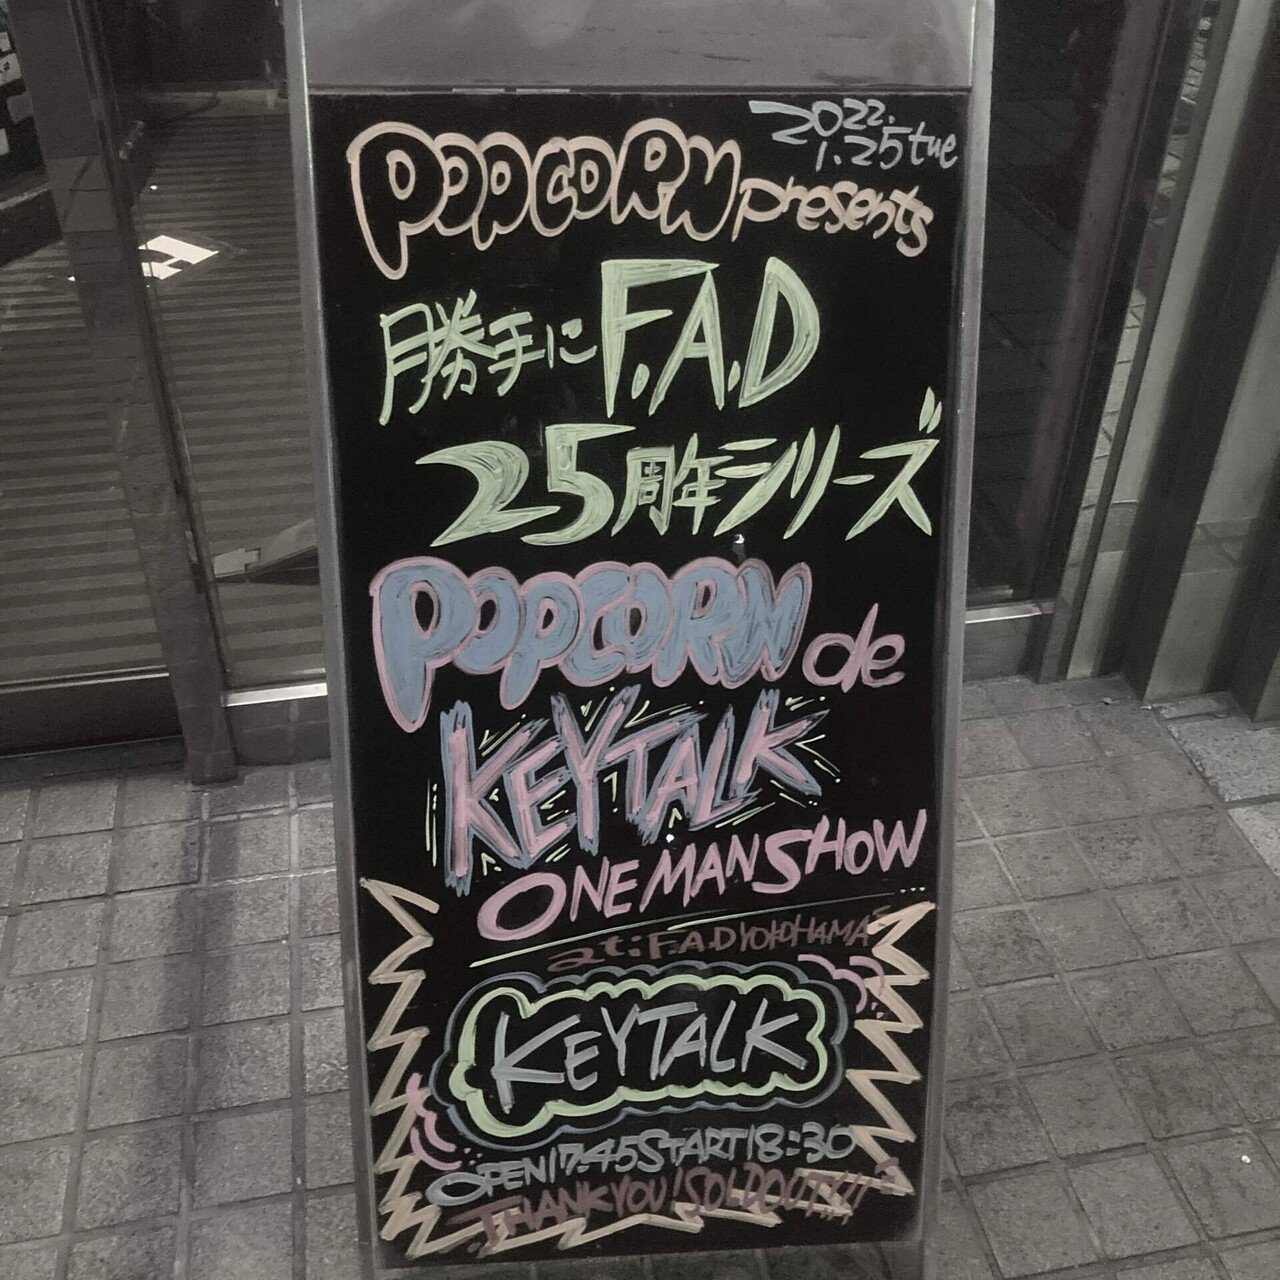 2022.
1.25 tue
POPCORN presents
勝手に F.A.D
25周年シリーズ
POPCORN de
KEYTALK
ONE MAN SHOW
at: F.A.D YOKOHAMA
KEYTALK
OPEN 17:45 START 18:30
THANK YOU! SOLD OUT!!!